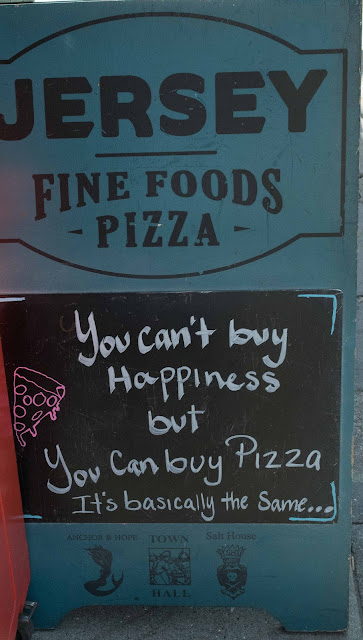 JERSEY
FINE FOODS
- PIZZA -
You can't buy
Happiness
but
You Can buy Pizza
It's basically the Same...
ANCHOR & HOPE TOWN Salt House
HALL